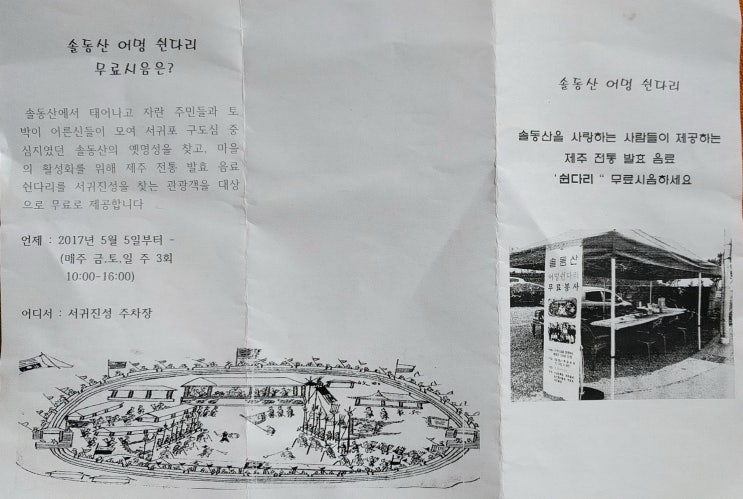 솔동산 어멍 쉰다리
무료시음은?
솔동산에서 태어나고 자란 주민들과 토
박이 어른신들이 모여 서귀포 구도심 중
심지였던 솔동산의 옛명성을 찾고, 마을
의 활성화를 위해 제주 전통 발효 음료
쉰다리를 서귀진성을 찾는 관광객을 대상
으로 무료로 제공합니다
언제 : 2017년 5월 5일부터 -
(매주 금,토,일 주 3회
10:00-16:00)
어디서 : 서귀진성 주차장
솔동산 어멍 쉰다리
솔동산을 사랑하는 사람들이 제공하는
제주 전통 발효 음료
'쉰다리 " 무료시음하세요
솔동산
어멍쉰다리
무료봉사